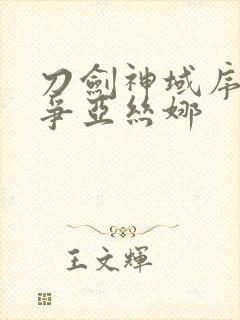 刀劍神域序
爭亞絲娜
王文輝